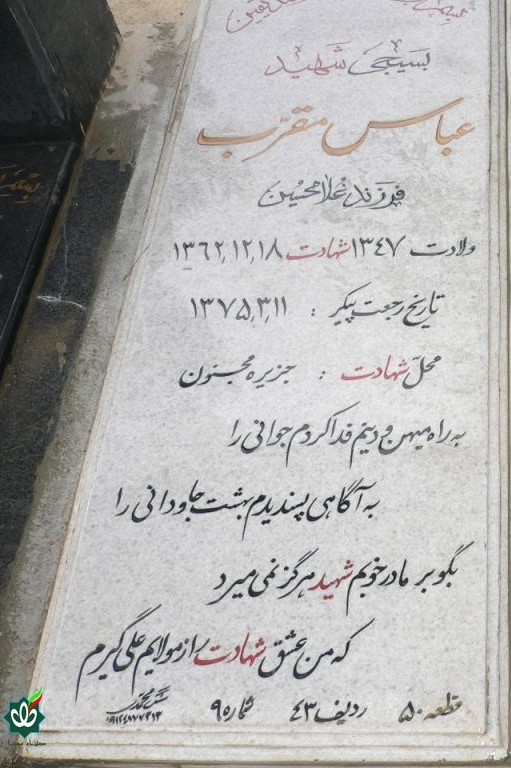 بسیجی شهید
عباس مقرّب
فرزند غلامحسین
ولادت ۱۳۴۷ شهادت ۱۳۶۲,۱۲,۱۸
تاریخ رجعت پیکر : ۱۳۷۵,۳,۱۱
محلّ شهادت : جزیره مجنون
به راه میهن و دینم فدا کردم جوانی را
به آگاهی پسندیدم بهشت جاودانی را
بگو بر مادر خوبم شهید هرگز نمی میرد
که من عشق شهادت را از مولایم علی گیرم
قطعه ۵۰ ردیف ۴۳ شماره ۹